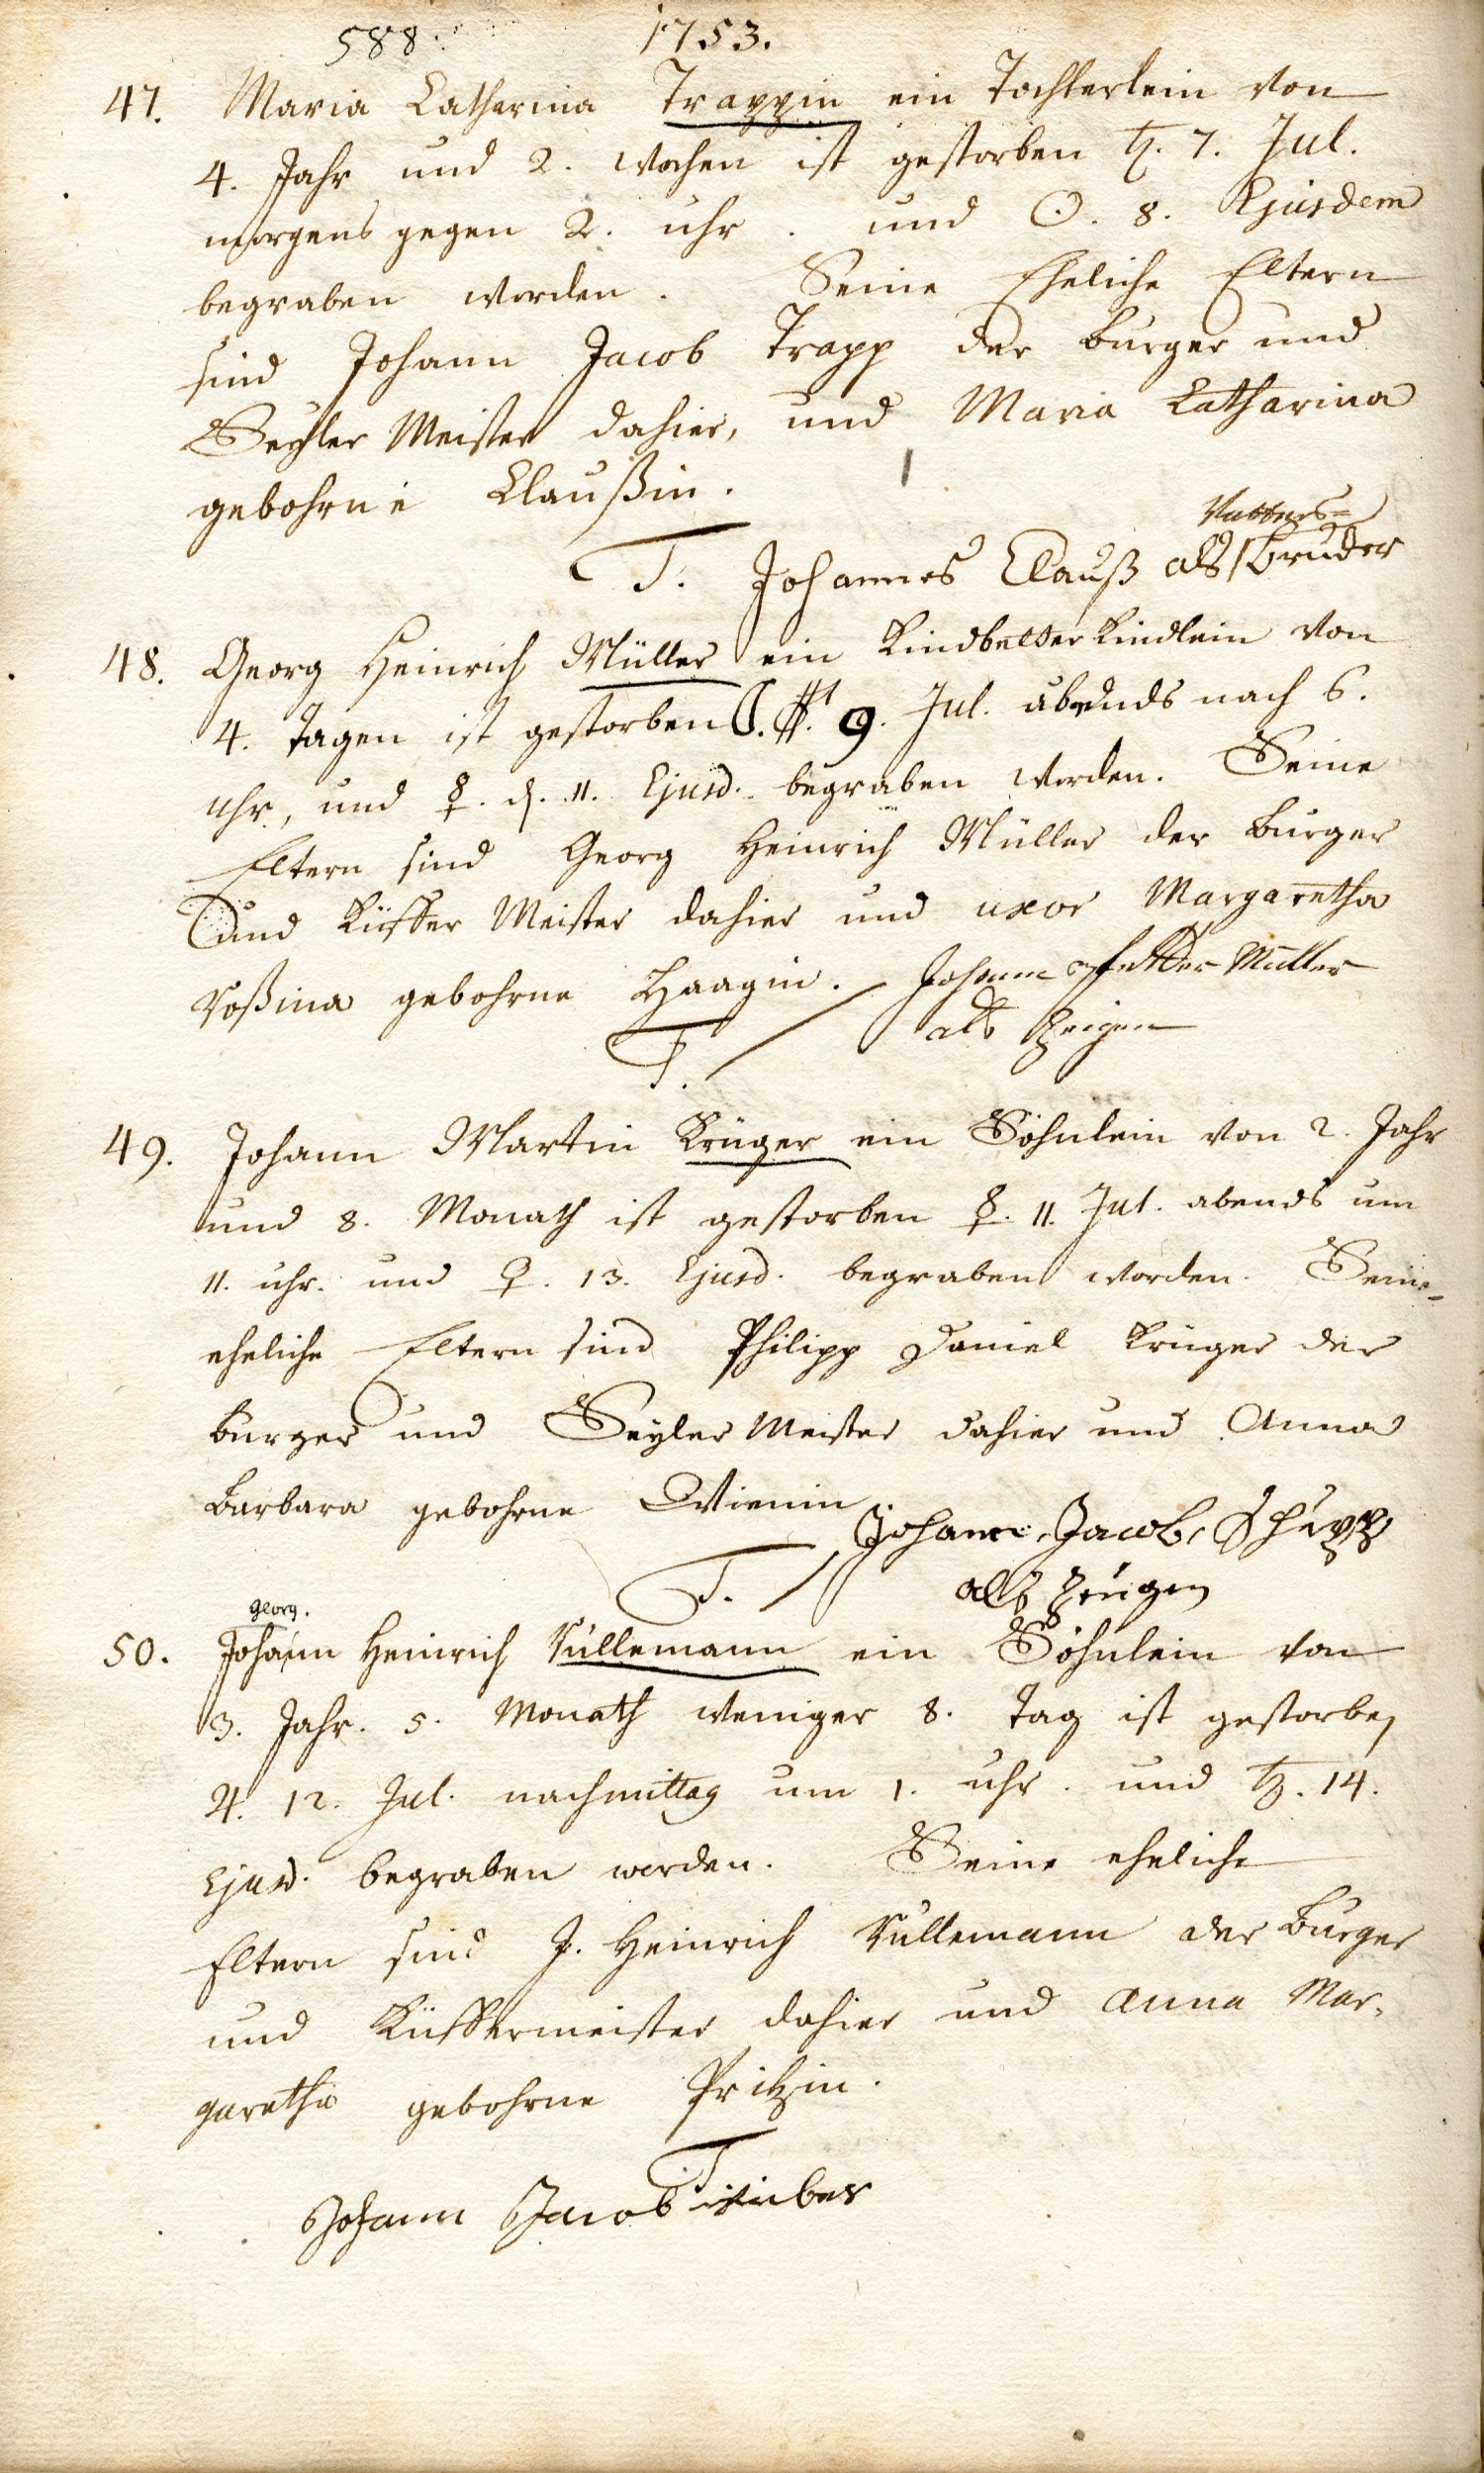 588. 1753.
47. Maria Catharina Trappin ein Töchterlein von
4. Jahr und 2. wochen ist gestorben ♄. 7. Jul.
morgens gegen 2. uhr. und ☉. 8. Ejusdem
begraben worden. Seine Eheliche Eltern
sind Johann Jacob Trapp der burger und
Seyler Meister dahier, und Maria Catharina
gebohrne Claußin.
Vatters=
T. Johannes Clauß als bruder
48. Georg Heinrich Müller ein Kindbetter Kindlein von
4. Tagen ist gestorben ☾. 9. Jul. abends nach 6.
uhr, und ☿. d. 11. Ejusd. begraben worden. Seine
Eltern sind Georg Heinrich Müller der burger
und Küffer Meister dahier und uxor Margaretha
Roßina gebohrne Haagin. Johann Müller
T. als Zeigen
49. Johann Martin Krüger ein Söhnlein von 2. Jahr
und 8. Monath ist gestorben ☿. 11. Jul. abends um
11. uhr. und ♀. 13. Ejusd. begraben worden. Seine
eheliche Eltern sind Philipp Daniel Krüger der
burger und Seyler Meister dahier und Anna
Barbara gebohrne
Johann Jacob
T. als Zeugen
Georg.
50. Johann Heinrich Küllemann ein Söhnlein von
3. Jahr. 5. Monath weniger 8. Tag ist gestorben
♃. 12. Jul. nachmittag um 1. uhr. und ♄. 14.
Ejusd. begraben worden. Seine eheliche
Eltern sind J. Heinrich Küllemann der burger
und Küffermeister dahier und Anna Mar-
garetha gebohrne Pritzin.
T.
Johann Jacob